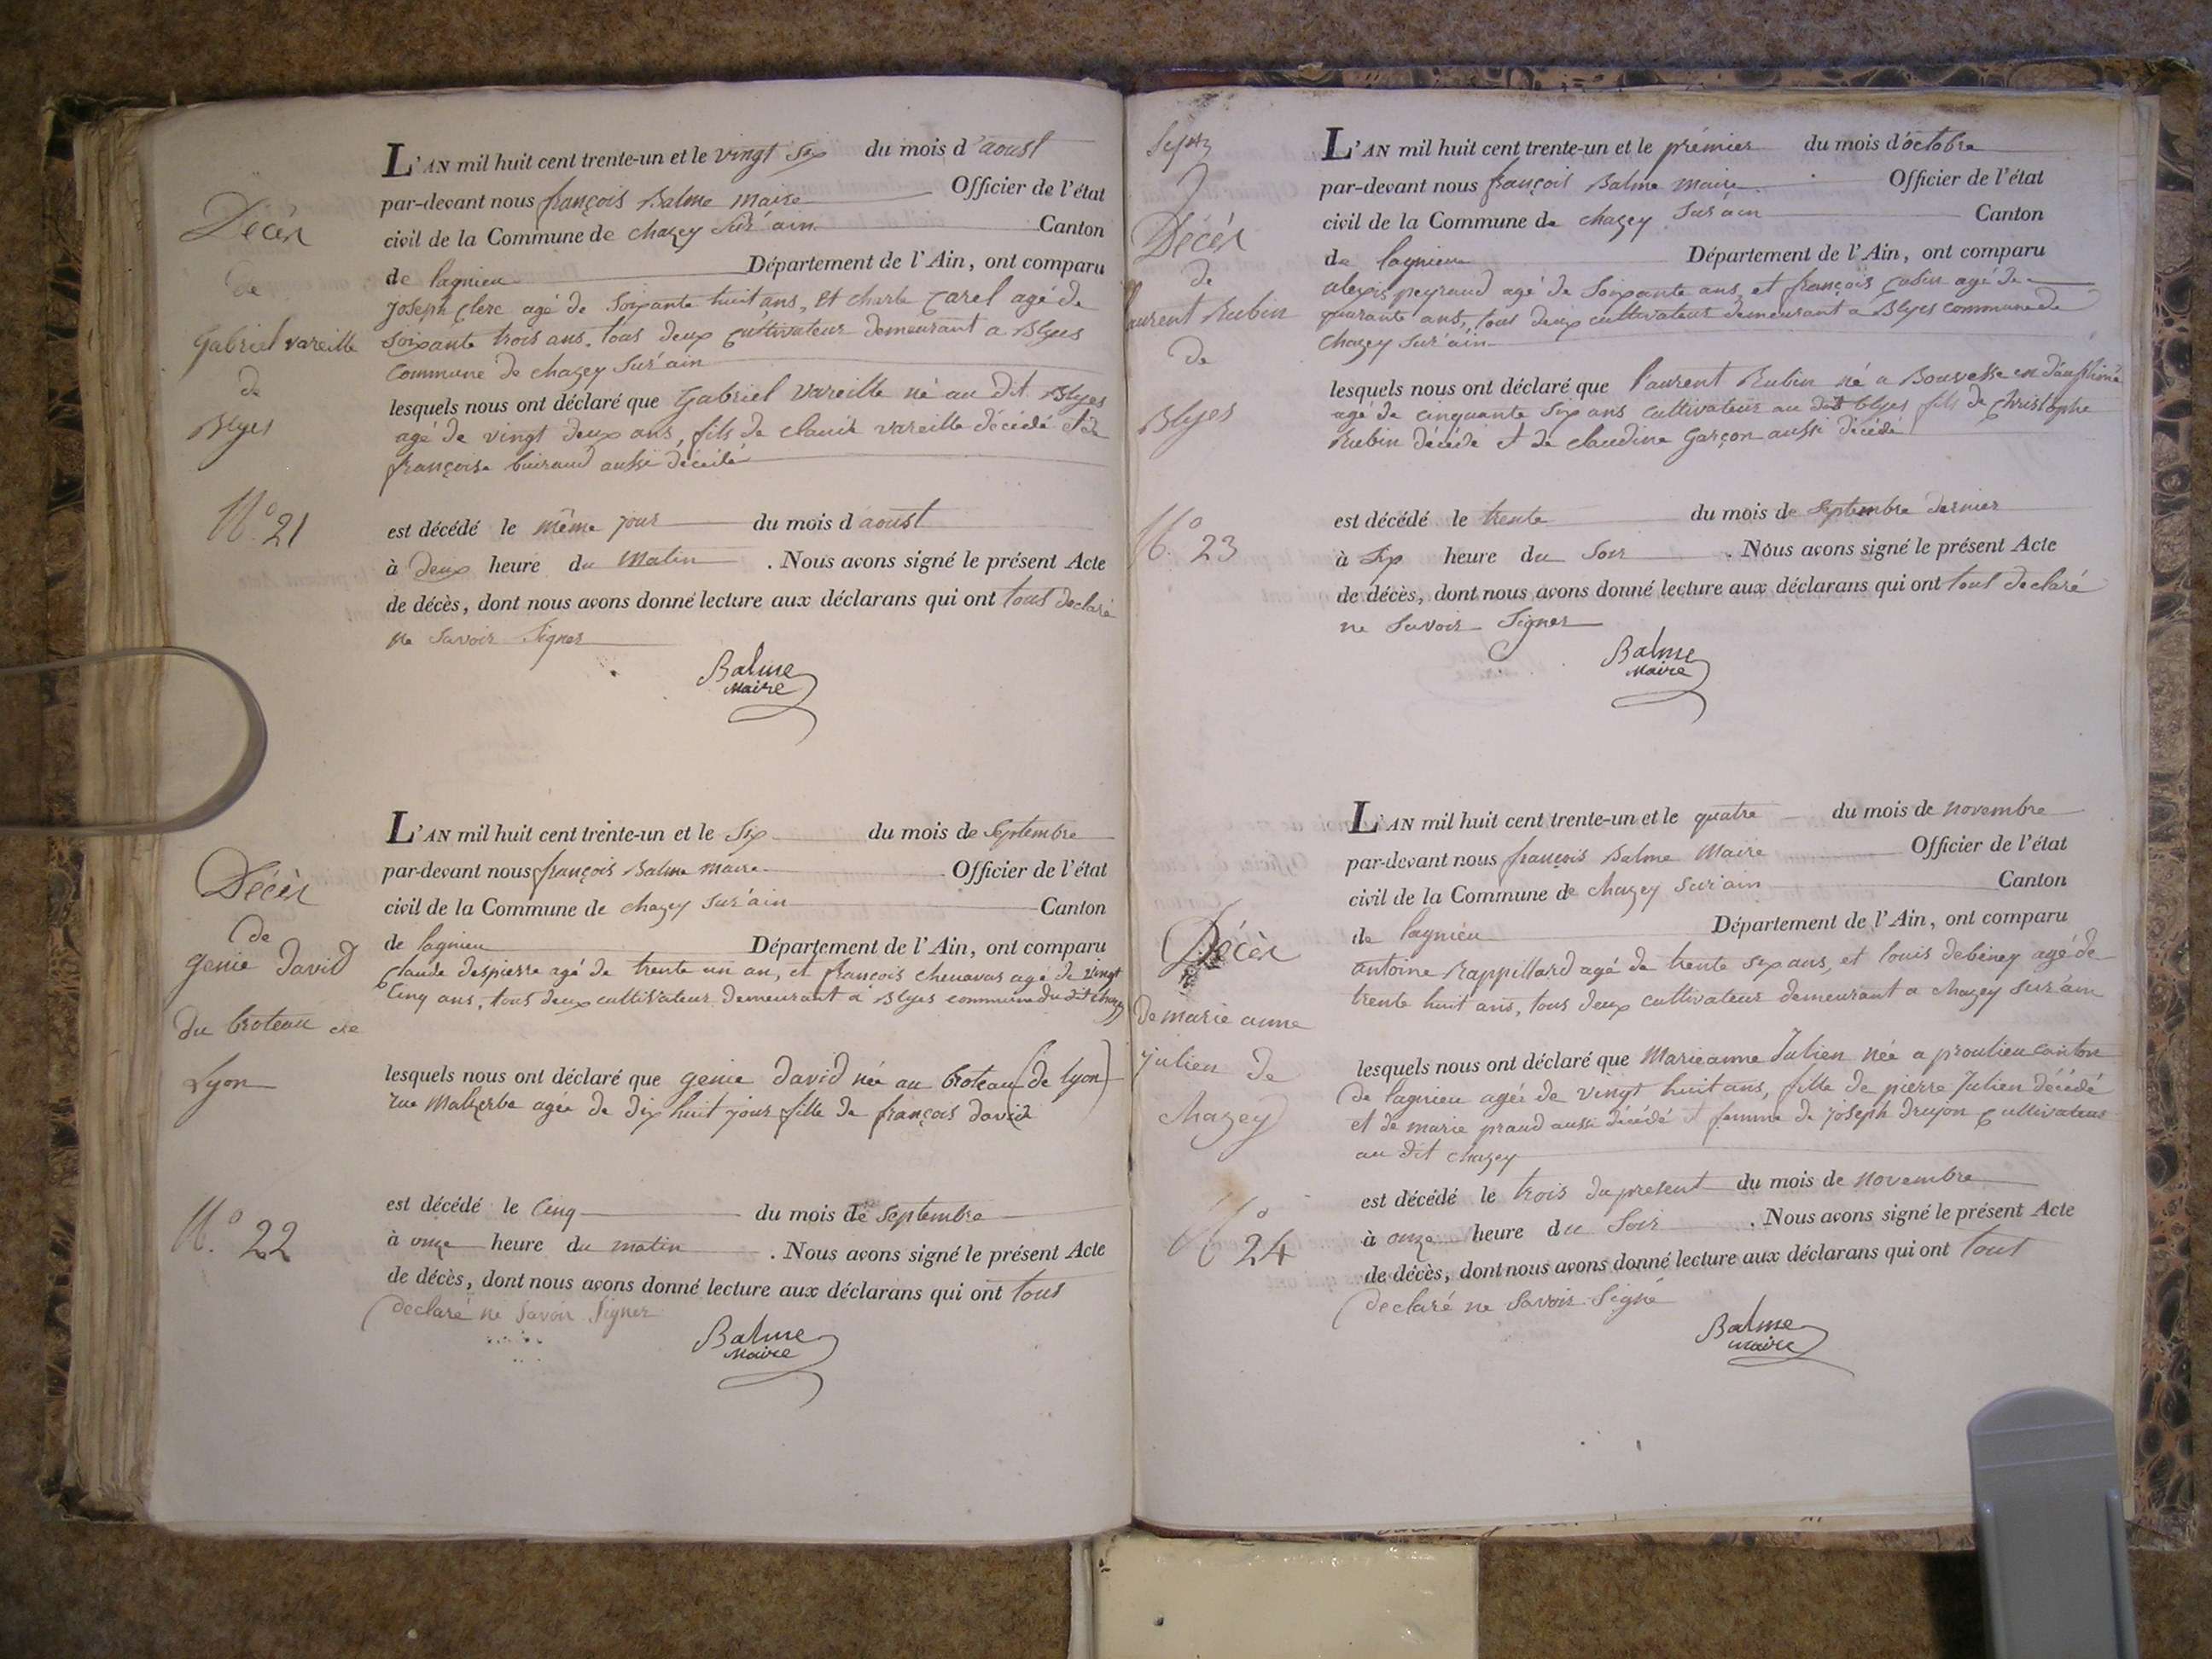 Décès
de
Gabriel vareille
de
Blyes
N.º 21
L'AN mil huit cent trente-un et le vingt six du mois d'aoust
par-devant nous françois Balme maire Officier de l'état
civil de la Commune de chazey sur ain Canton
de lagnieu Département de l'Ain, ont comparu
joseph Clerc agé de soixante huit ans, et charle Carel agé de
soixante trois ans. tous deux cultivateur demeurant a Blyes
commune de chazey sur ain
lesquels nous ont déclaré que Gabriel vareille né au dit Blyes
agé de vingt deux ans, fils de claude vareille décédé et de
françoise buiraud aussi décédé
est décédé le même jour du mois d aoust
à deux heure du matin . Nous avons signé le présent Acte
de décès, dont nous avons donné lecture aux déclarans qui ont tout declaré
ne savoir signer
Balme
Maire
Décès
de
genie david
du broteau de
Lyon
N.º 22
L'AN mil huit cent trente-un et le six du mois de septembre
par-devant nous françois Balme maire Officier de l'état
civil de la Commune de chazey sur ain Canton
de lagnieu Département de l'Ain, ont comparu
Claude despierre agé de trente un an, et françois chenavas agé de vingt
cinq ans, tous deux cultivateur demeurant a Blyes commune du dit chazey
lesquels nous ont déclaré que genie david née au broteau (de lyon)
rue Malherbe agée de dix huit jour fille de françois david
est décédé le cinq du mois de septembre
à onze heure du matin . Nous avons signé le présent Acte
de décès, dont nous avons donné lecture aux déclarans qui ont tous
declaré ne savoir signer
Balme
Maire
Décès
de
laurent Rubin
de
Blyes
N.º 23
L'AN mil huit cent trente-un et le prémier du mois d'octobre
par-devant nous françois Balme maire Officier de l'état
civil de la Commune de chazey sur ain Canton
de lagnieu Département de l'Ain, ont comparu
alexis peyraud agé de soixante ans, et françois Cabin agé de
quarante ans, tous deux cultivateur demeurant a Blyes commune de
chazey sur ain
lesquels nous ont déclaré que laurent Rubin né a Bouvesse en dauphiné
agé de cinquante six ans cultivateur au dit blyes fils de christophe
Rubin décédé et de claudine Garçon aussi décédé
est décédé le trente du mois de septembre dernier
à six heure du soir . Nous avons signé le présent Acte
de décès, dont nous avons donné lecture aux déclarans qui ont tout declaré
ne savoir signer
Balme
Maire
Décès
de marie anne
julien de
chazey
Nº 24
L'AN mil huit cent trente-un et le quatre du mois de novembre
par-devant nous françois Balme Maire Officier de l'état
civil de la Commune de chazey sur ain Canton
de lagnieu Département de l'Ain, ont comparu
antoine Rappillard agé de trente six ans, et louis debeney agé de
trente huit ans, tous deux cultivateur demeurant a chazey sur ain
lesquels nous ont déclaré que Marieanne Julien née a proulieu canton
de lagnieu agéé de vingt huit ans, fille de pierre Julien décédé
et de marie praud aussi décédé et femme de joseph druyon cultivateur
au dit chazey
est décédé le trois du present du mois de novembre
à onze heure du soir . Nous avons signé le présent Acte
de décès, dont nous avons donné lecture aux déclarans qui ont tout
declaré ne savoir signé
Balme
maire